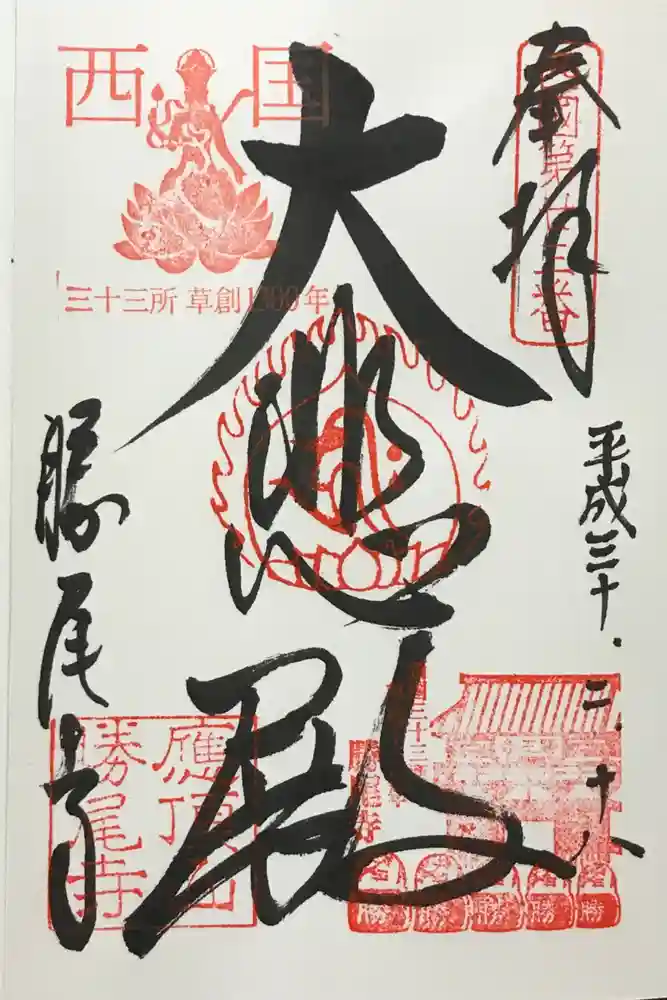 奉拝
西國第廿三番
平成三十・二・十八
西国
三十三所 草創1300年
大悲殿
勝尾寺
應頂山
勝尾寺
勝
勝
勝
勝
勝